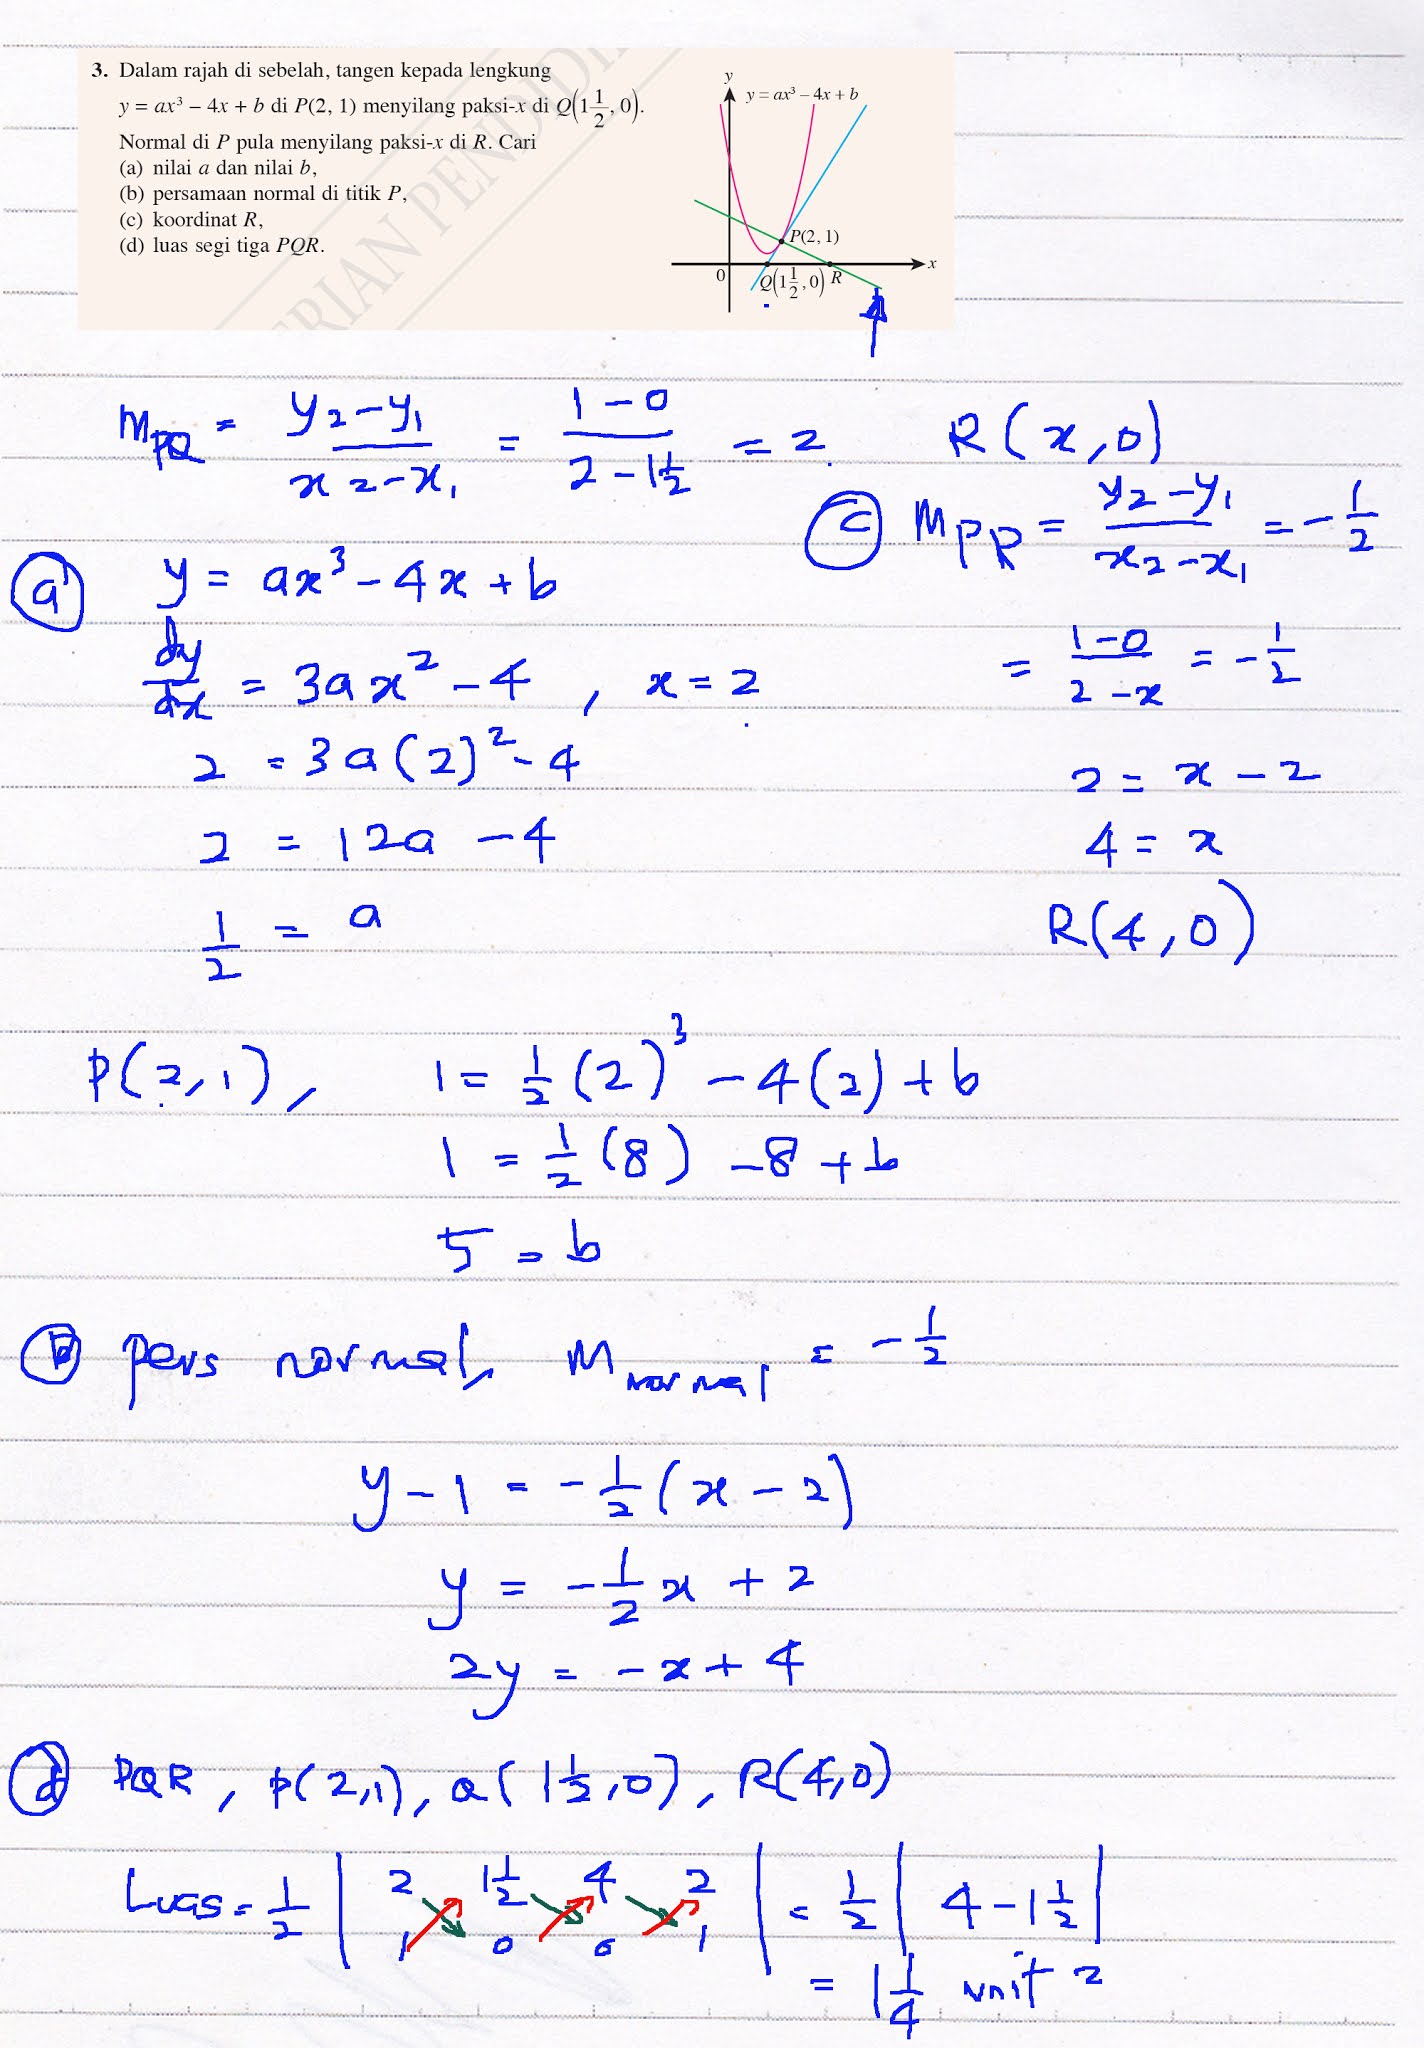 3. Dalam rajah di sebelah, tangen kepada lengkung
y = ax³ – 4x + b di P(2, 1) menyilang paksi-x di Q(1 1/2, 0).
Normal di P pula menyilang paksi-x di R. Cari
(a) nilai a dan nilai b,
(b) persamaan normal di titik P,
(c) koordinat R,
(d) luas segi tiga PQR.
y
y = ax³ – 4x + b
P(2, 1)
0
Q(1 1/2, 0)
R
x
ERIAN PENDIDI
m_PQ = (y₂ – y₁)/(x₂ – x₁) = (1 – 0)/(2 – 1 1/2) = 2
(a) y = ax³ – 4x + b
dy/dx = 3ax² – 4 , x = 2
2 = 3a(2)² – 4
2 = 12a – 4
1/2 = a
P(2,1), 1 = 1/2 (2)³ – 4(2) + b
1 = 1/2 (8) – 8 + b
5 = b
R(x, 0)
(c) m_PR = (y₂ – y₁)/(x₂ – x₁) = – 1/2
= (1 – 0)/(2 – x) = – 1/2
2 = x – 2
4 = x
R(4, 0)
(b) pers normal, m_normal = – 1/2
y – 1 = – 1/2 (x – 2)
y = – 1/2 x + 2
2y = – x + 4
(d) PQR, P(2,1), Q(1 1/2, 0), R(4,0)
Luas = 1/2 | 2 1 1/2 4 2 | = 1/2 | 4 – 1 1/2 |
1 0 0 1
= 1 1/4 unit ²